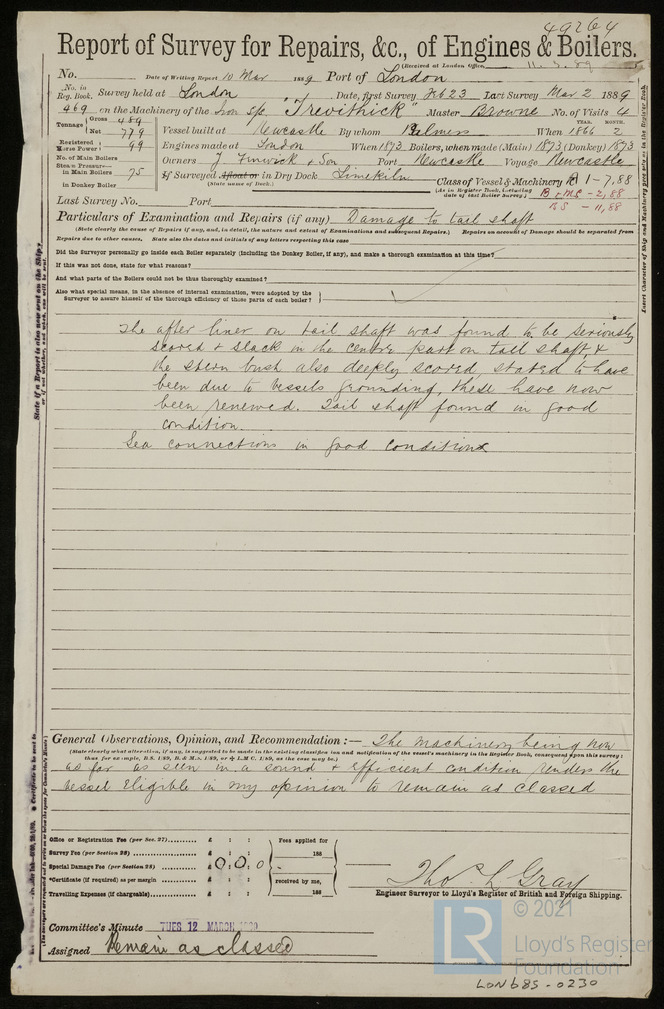 49264
Report of Survey for Repairs, &c., of Engines & Boilers.
(Received at London Office,
No. Date of Writing Report 10 Mar 1889 Port of London
No. in Reg. Book. Survey held at London Date, first Survey Feb 23 Last Survey Mar 2 1889
469 on the Machinery of the Iron S/c "Trevithick" Master Browne No. of Visits 4
Tonnage Gross 489 Net 779
Vessel built at Newcastle By whom Palmers When YEAR. 1866 MONTH. 2
Registered Horse Power 99 Engines made at London When 1873 Boilers, when made (Main) 1873 (Donkey) 1873
No. of Main Boilers Owners J. Fenwick & Son Port Newcastle Voyage Newcastle
Steam Pressure in Main Boilers 75 If Surveyed Afloat or in Dry Dock Limekiln Class of Vessel & Machinery A 1 - 7,88
in Donkey Boiler (State name of Dock.) (As in Register Book, including date of last Boiler Survey.) B & MS - 2,88
BS - 11,88
Last Survey No. Port
Particulars of Examination and Repairs (if any) Damage to tail shaft
(State clearly the cause of Repairs if any, and, in detail, the nature and extent of Examinations and subsequent Repairs.) Repairs on account of Damage should be separated from
Repairs due to other causes. State also the dates and initials of any letters respecting this case
Did the Surveyor personally go inside each Boiler separately (including the Donkey Boiler, if any), and make a thorough examination at this time?
If this was not done, state for what reasons?
And what parts of the Boilers could not be thus thoroughly examined?
Also what special means, in the absence of internal examination, were adopted by the
Surveyor to assure himself of the thorough efficiency of those parts of each boiler?
The after liner on tail shaft was found to be seriously
scored & slack in the centre part on tail shaft, &
the stern bush also deeply scored, stated to have
been due to vessels grounding, these have now
been renewed. Tail shaft found in good
condition.
Sea connections in good condition
General Observations, Opinion, and Recommendation :— The machinery being now
(State clearly what alteration, if any, is suggested to be made in the existing classification and notification of the vessel's machinery in the Register Book, consequent upon this survey:
thus for example, B.S. 1/89, B. & M.S. 1/89, or L.M.C. 1/89, as the case may be.)
as far as seen in a sound & efficient condition renders the
vessel Eligible in my opinion to remain as classed
Office or Registration Fee (per Sec. 27) £ : : Fees applied for
Survey Fee (per Section 28) £ : : 188
Special Damage Fee (per Section 28) £ 0 : 0 : 0
Certificate (if required) as per margin £ : : received by me,
Travelling Expenses (if chargeable) £ : : 188
Thos L Gray
Engineer Surveyor to Lloyd's Register of British and Foreign Shipping.
Committee's Minute TUES 12 MARCH
Assigned Remain as classed
© 2021
LR Lloyd's Register
Foundation
LON685-0230
State if a Report is also now sent on the Ship;
or if not whether, and when, one will be sent.
Insert Character of Ship and Machinery precisely as in the Register Book.